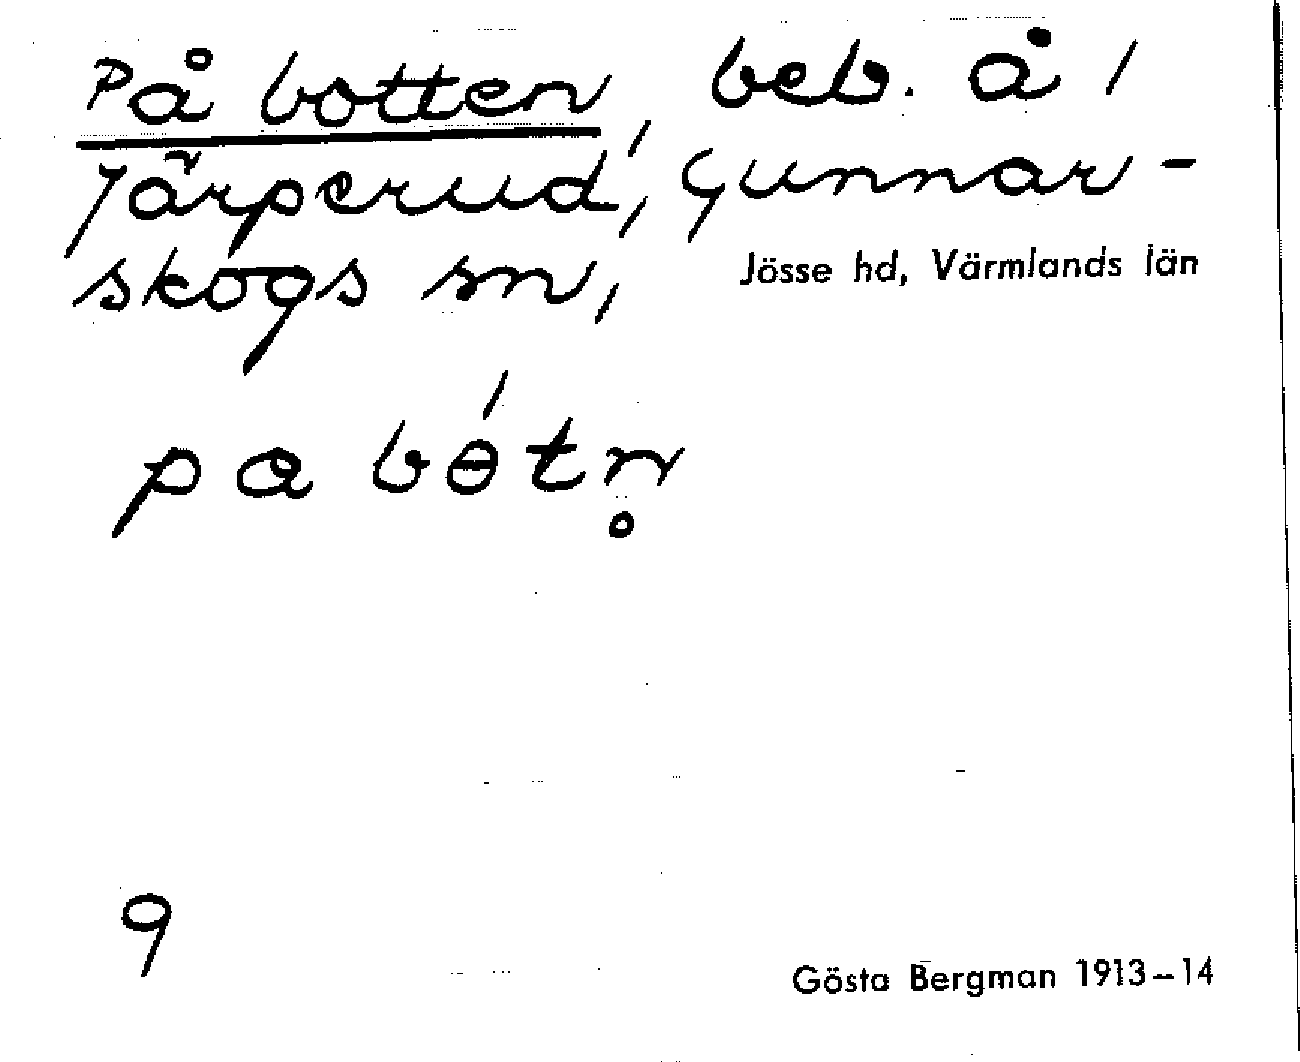 På botten, beb. å
Järperud, Gunnar-
skogs sn,
Jösse hd, Värmlands län
pa bɵ́tn̥
9
Gösta Bergman 1913–14